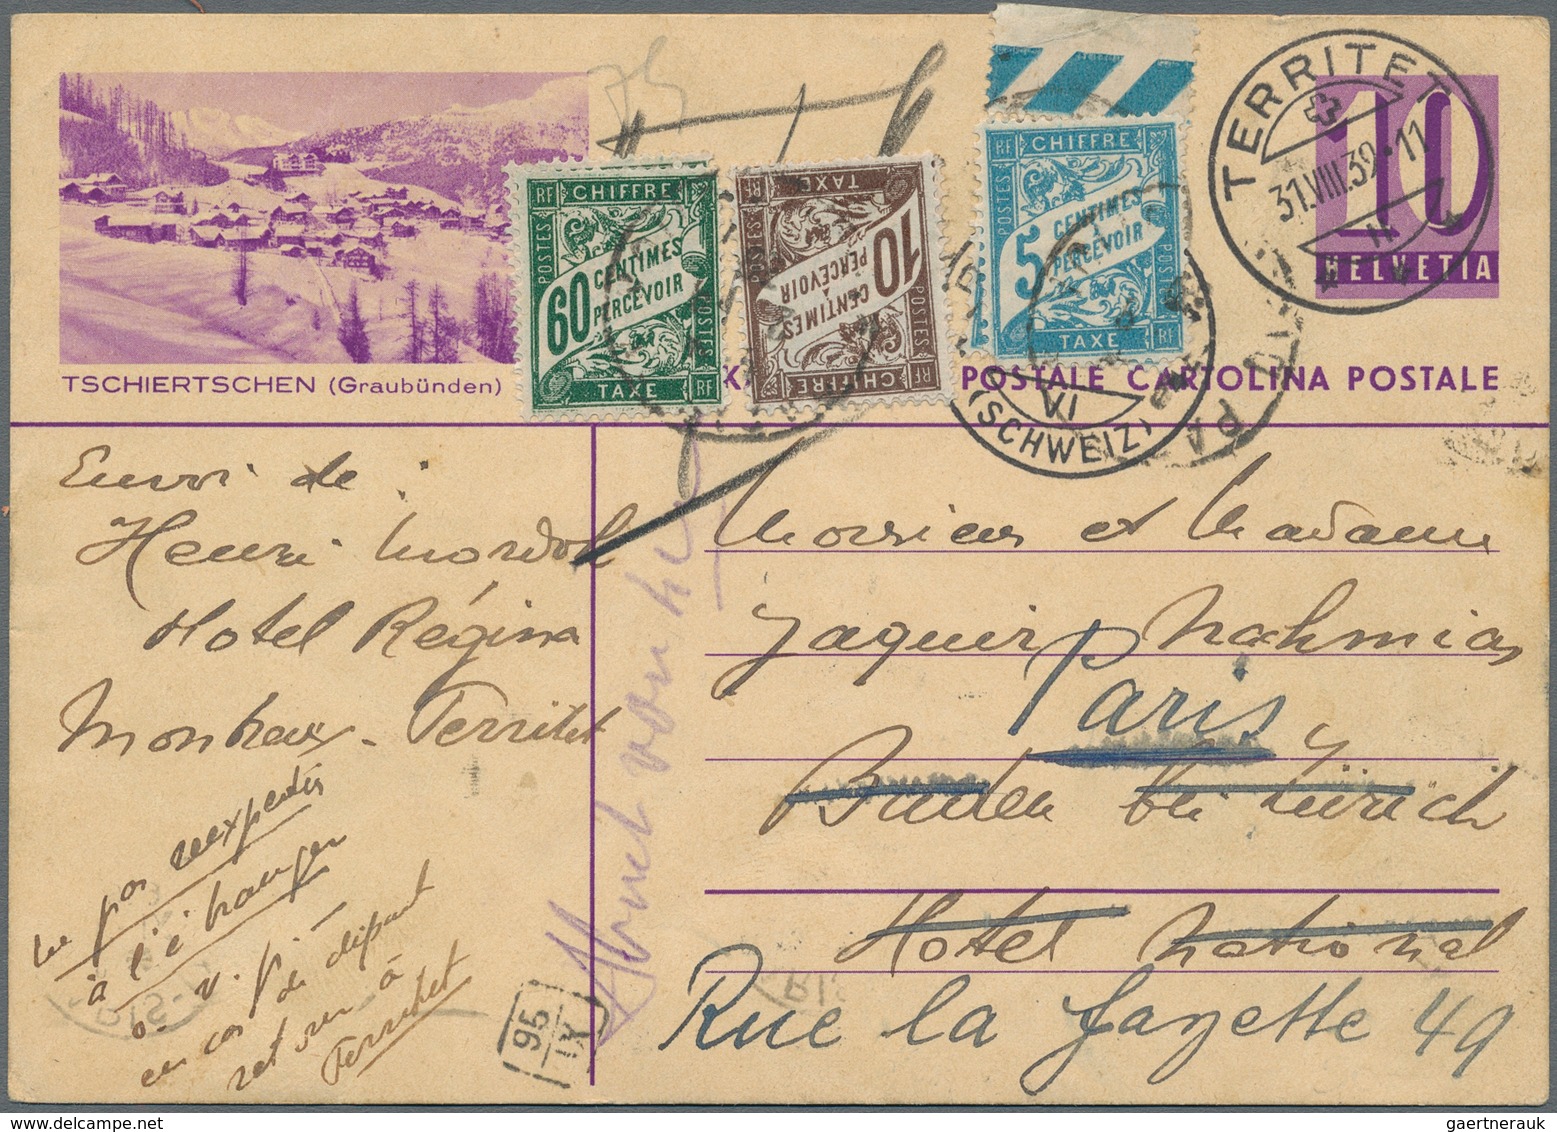 TSCHIERTSCHEN (Graubünden)
POSTES RF CHIFFRE
60 CENTIMES
À PERCEVOIR
TAXE RF
POSTES RF CHIFFRE
10 CENTIMES
À PERCEVOIR
TAXE
POSTES RF CHIFFRE
5 CENTIMES
À PERCEVOIR
TAXE RF
TERRITET
31.VIII.39·11
10
HELVETIA
POSTALE CARTOLINA POSTALE
VI
(SCHWEIZ)
PARIS
75
Envoi de :
Henri
Hotel Régina
Montreux - Territet
ne pas réexpédier
à l'étranger
v. p.
en cas de départ
retour à
Territet
Monsieur et Madame
Jaques Nahmias
Paris
Baden bei Zürich
Hotel National
Rue la fayette 49
95
IX
gaertnerauk